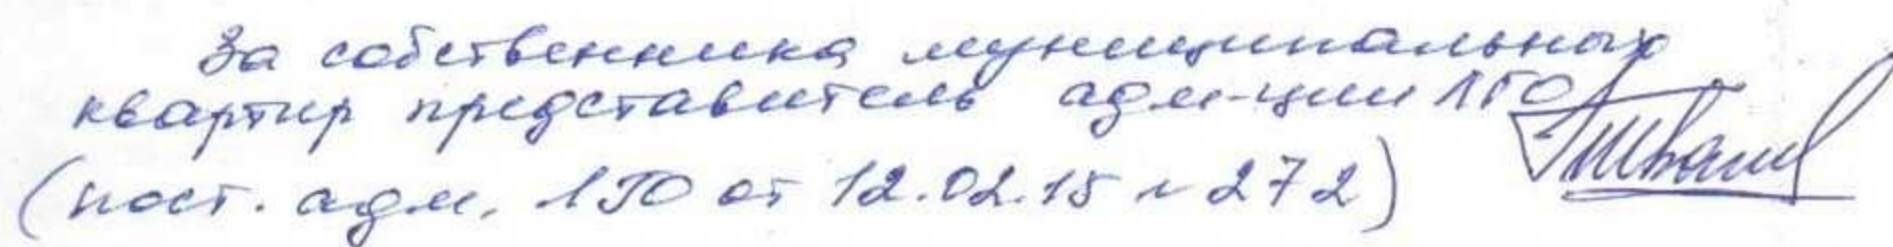 За собственника муниципальных
квартир представитель адм-ции ЛГО
(пост. адм. ЛГО от 12.02.15 № 272)